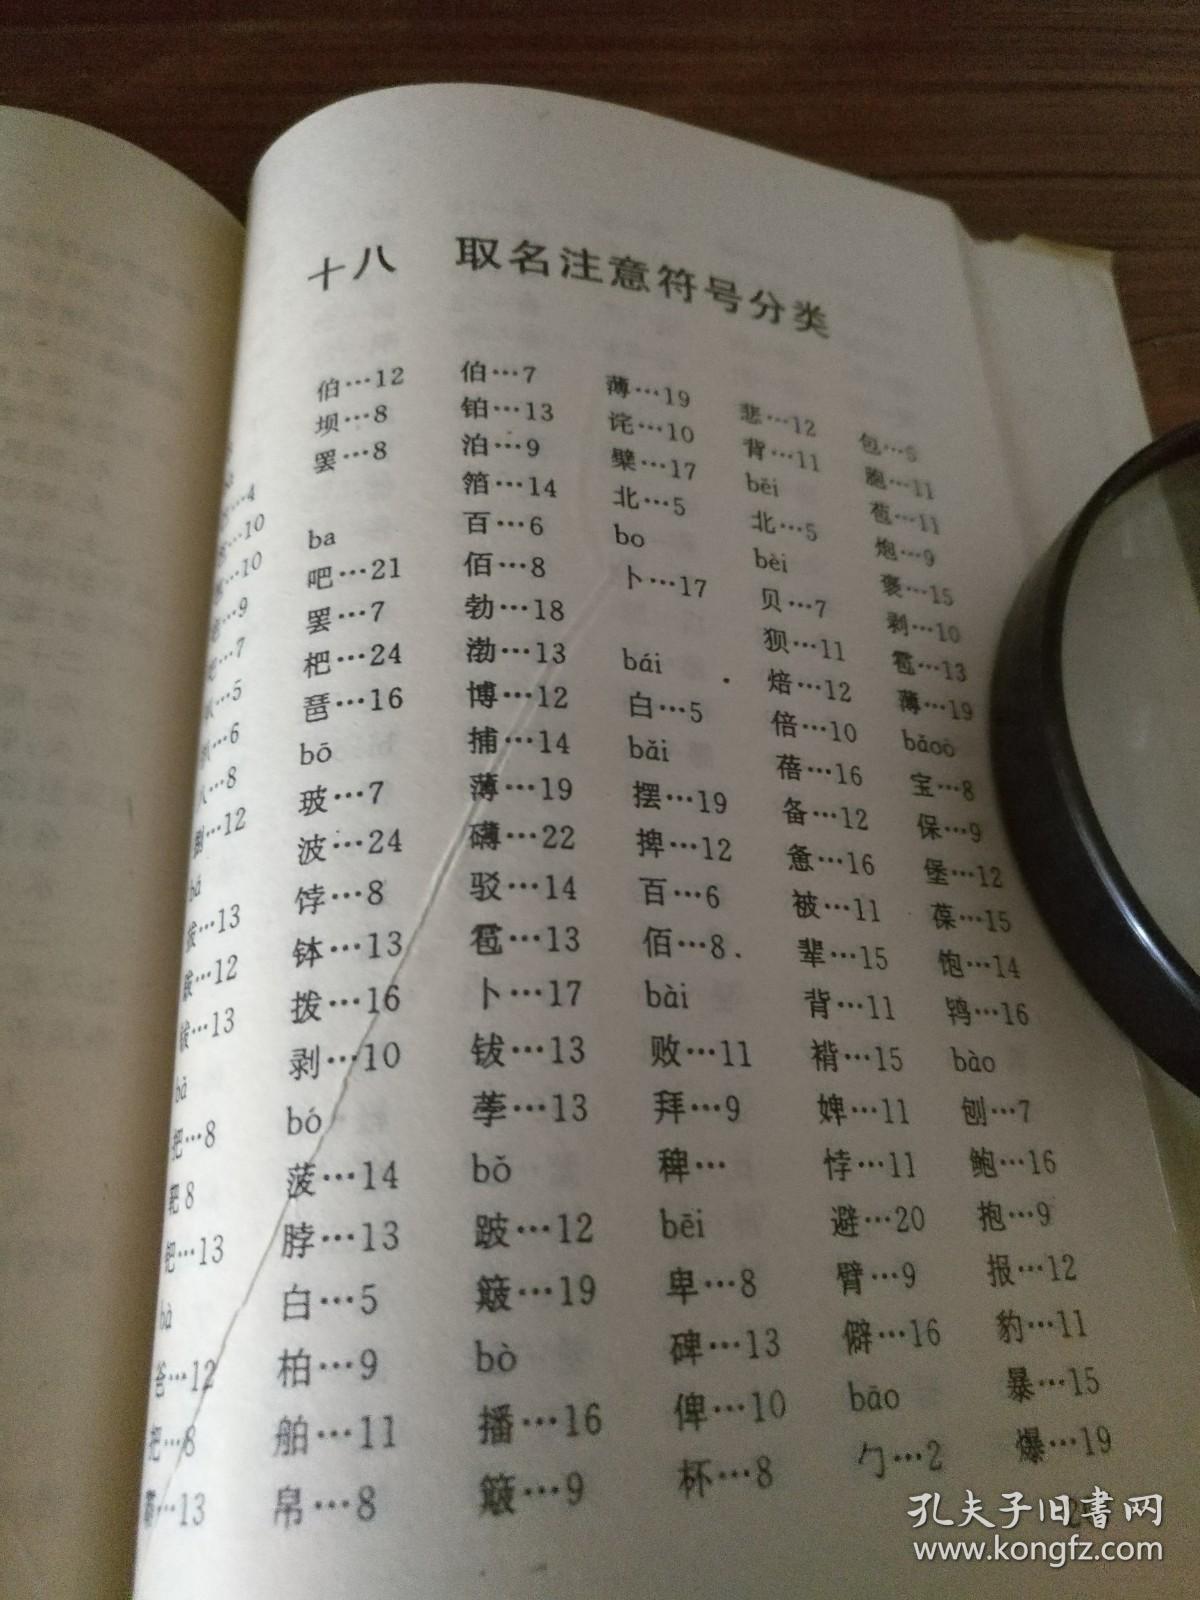 十八 取名注意符号分类
…4
…10
…10
…9
…7
…5
…6
…8
…12
bá
拔…13
跋…12
…13
bǎ
把…8
靶8
钯…13
bà
爸…12
把…8
霸…13
伯…12
坝…8
罢…8
ba
吧…21
罢…7
杷…24
琶…16
bō
玻…7
波…24
饽…8
钵…13
拨…16
剥…10
bó
菠…14
脖…13
白…5
柏…9
舶…11
帛…8
伯…7
铂…13
泊…9
箔…14
百…6
佰…8
勃…18
渤…13
博…12
捕…14
薄…19
礴…22
驳…14
雹…13
卜…17
钹…13
荸…13
bǒ
跛…12
簸…19
bò
播…16
簸…9
薄…19
诧…10
檗…17
北…5
bo
卜…17
bái
白…5
bǎi
摆…19
捭…12
百…6
佰…8
bài
败…11
拜…9
稗…
bēi
卑…8
碑…13
俾…10
杯…8
悲…12
背…11
běi
北…5
bèi
贝…7
狈…11
焙…12
倍…10
蓓…16
备…12
惫…16
被…11
辈…15
背…11
褙…15
婢…11
悖…11
避…20
臂…9
僻…16
bāo
勹…2
包…5
胞…11
苞…11
炮…9
褒…15
剥…10
雹…13
薄…19
bǎoò
宝…8
保…9
堡…12
葆…15
饱…14
鸨…16
bào
刨…7
鲍…16
抱…9
报…12
豹…11
暴…15
爆…19
孔夫子旧书网
www.kongfz.com